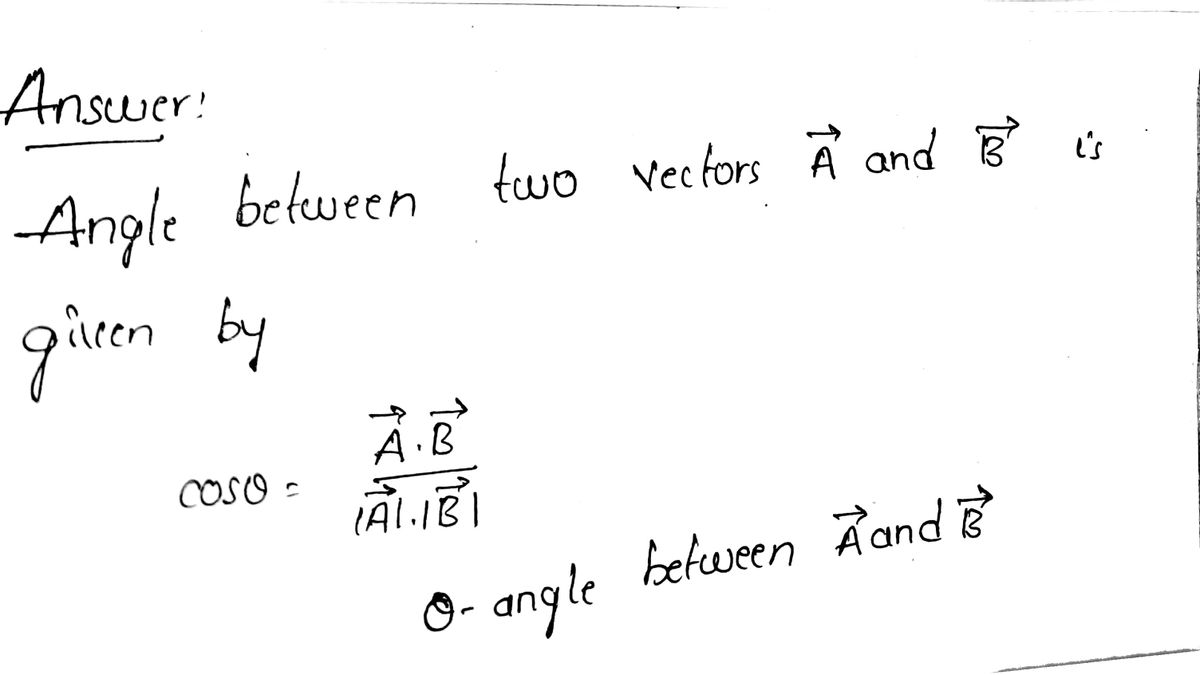 Answer:
Angle between two vectors A⃗ and B⃗ is
given by
cosθ = A⃗ . B⃗ / |A⃗| . |B⃗|
θ - angle between A⃗ and B⃗